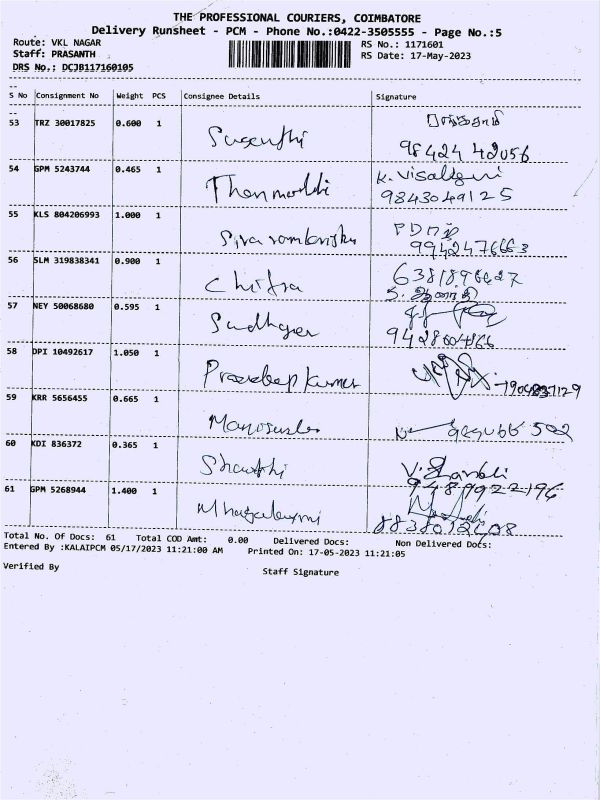 THE PROFESSIONAL COURIERS, COIMBATORE
Delivery Runsheet - PCM - Phone No.:0422-3505555 - Page No.:5
Route: VKL NAGAR RS No.: 1171601
Staff: PRASANTH RS Date: 17-May-2023
DRS No.: DCJB117160105
S No Consignment No Weight PCS Consignee Details Signature
53 TRZ 30017825 0.600 1
Sugenthi 98424 42056
54 GPM 5243744 0.465 1 K. Visalkgini
Thenmozhi 9843049125
55 KLS 804206993 1.000 1
Siva 9942476663
56 SLM 319838341 0.900 1
Chitra
57 NEY 50068680 0.595 1
Sudhager
58 DPI 10492617 1.050 1
Pradeep Kumar
59 KRR 5656455 0.665 1
60 KDI 836372 0.365 1
Shanthi V.
9489922196
61 GPM 5268944 1.400 1
Total No. Of Docs: 61 Total COD Amt: 0.00 Delivered Docs: Non Delivered Docs:
Entered By :KALAIPCM 05/17/2023 11:21:00 AM Printed On: 17-05-2023 11:21:05
Verified By Staff Signature